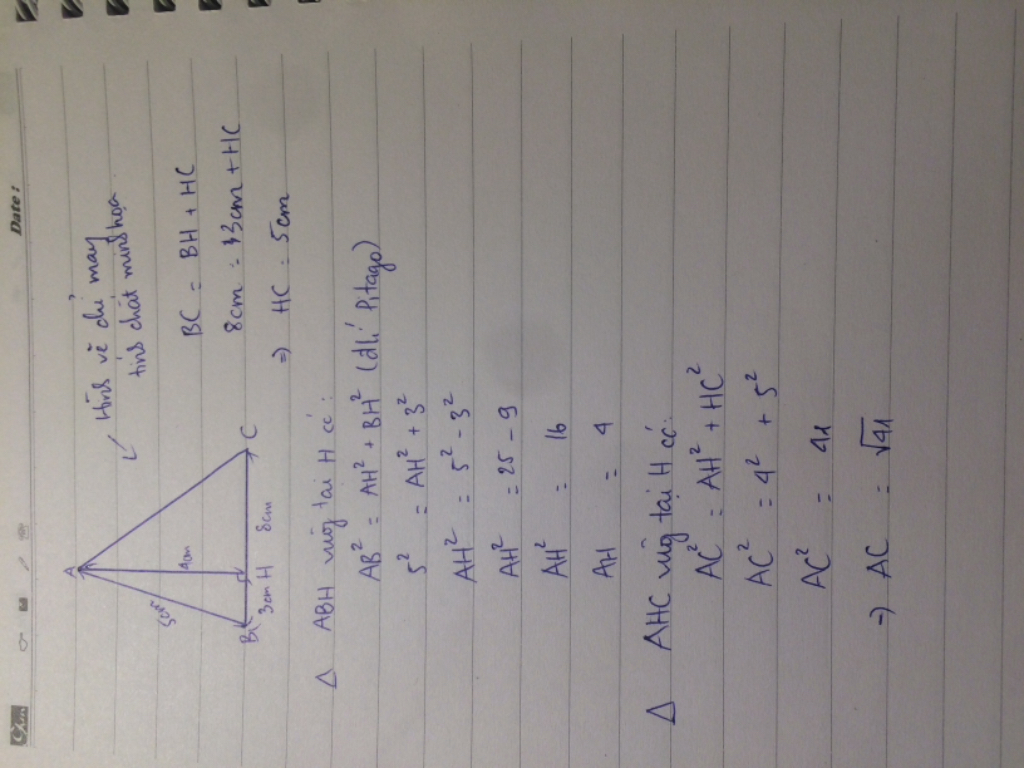 Date:
← Hình vẽ chỉ mang
tính chất minh họa
A
5cm
4cm
B
3cm H 8cm
C
BC = BH + HC
8cm = 3cm + HC
=) HC = 5cm
Δ ABH vuông tại H có:
AB² = AH² + BH² (đlí Pitago)
5² = AH² + 3²
AH² = 5² - 3²
AH² = 25 - 9
AH² = 16
AH = 4
Δ AHC vuông tại H có:
AC² = AH² + HC²
AC² = 4² + 5²
AC² = 41
=) AC = √41